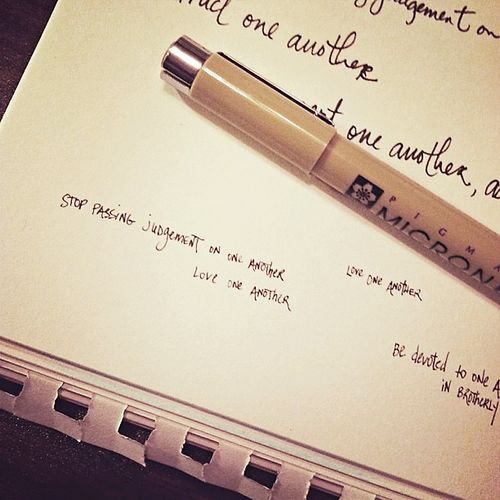 judgement on
one another
one another,
PIGMA
MICRON
STOP PASSING judgement ON ONE ANOTHER
LOVE ONE ANOTHER
LOVE ONE ANOTHER
BE devoted to one
IN BROTHERLY